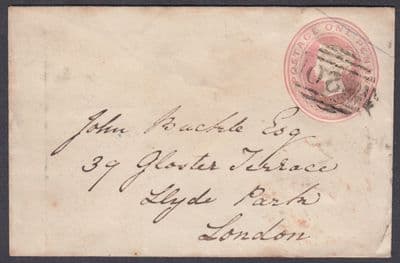 POSTAGE ONE PENNY
John Rackle Esq
39 Gloster Terrace
Hyde Park
London